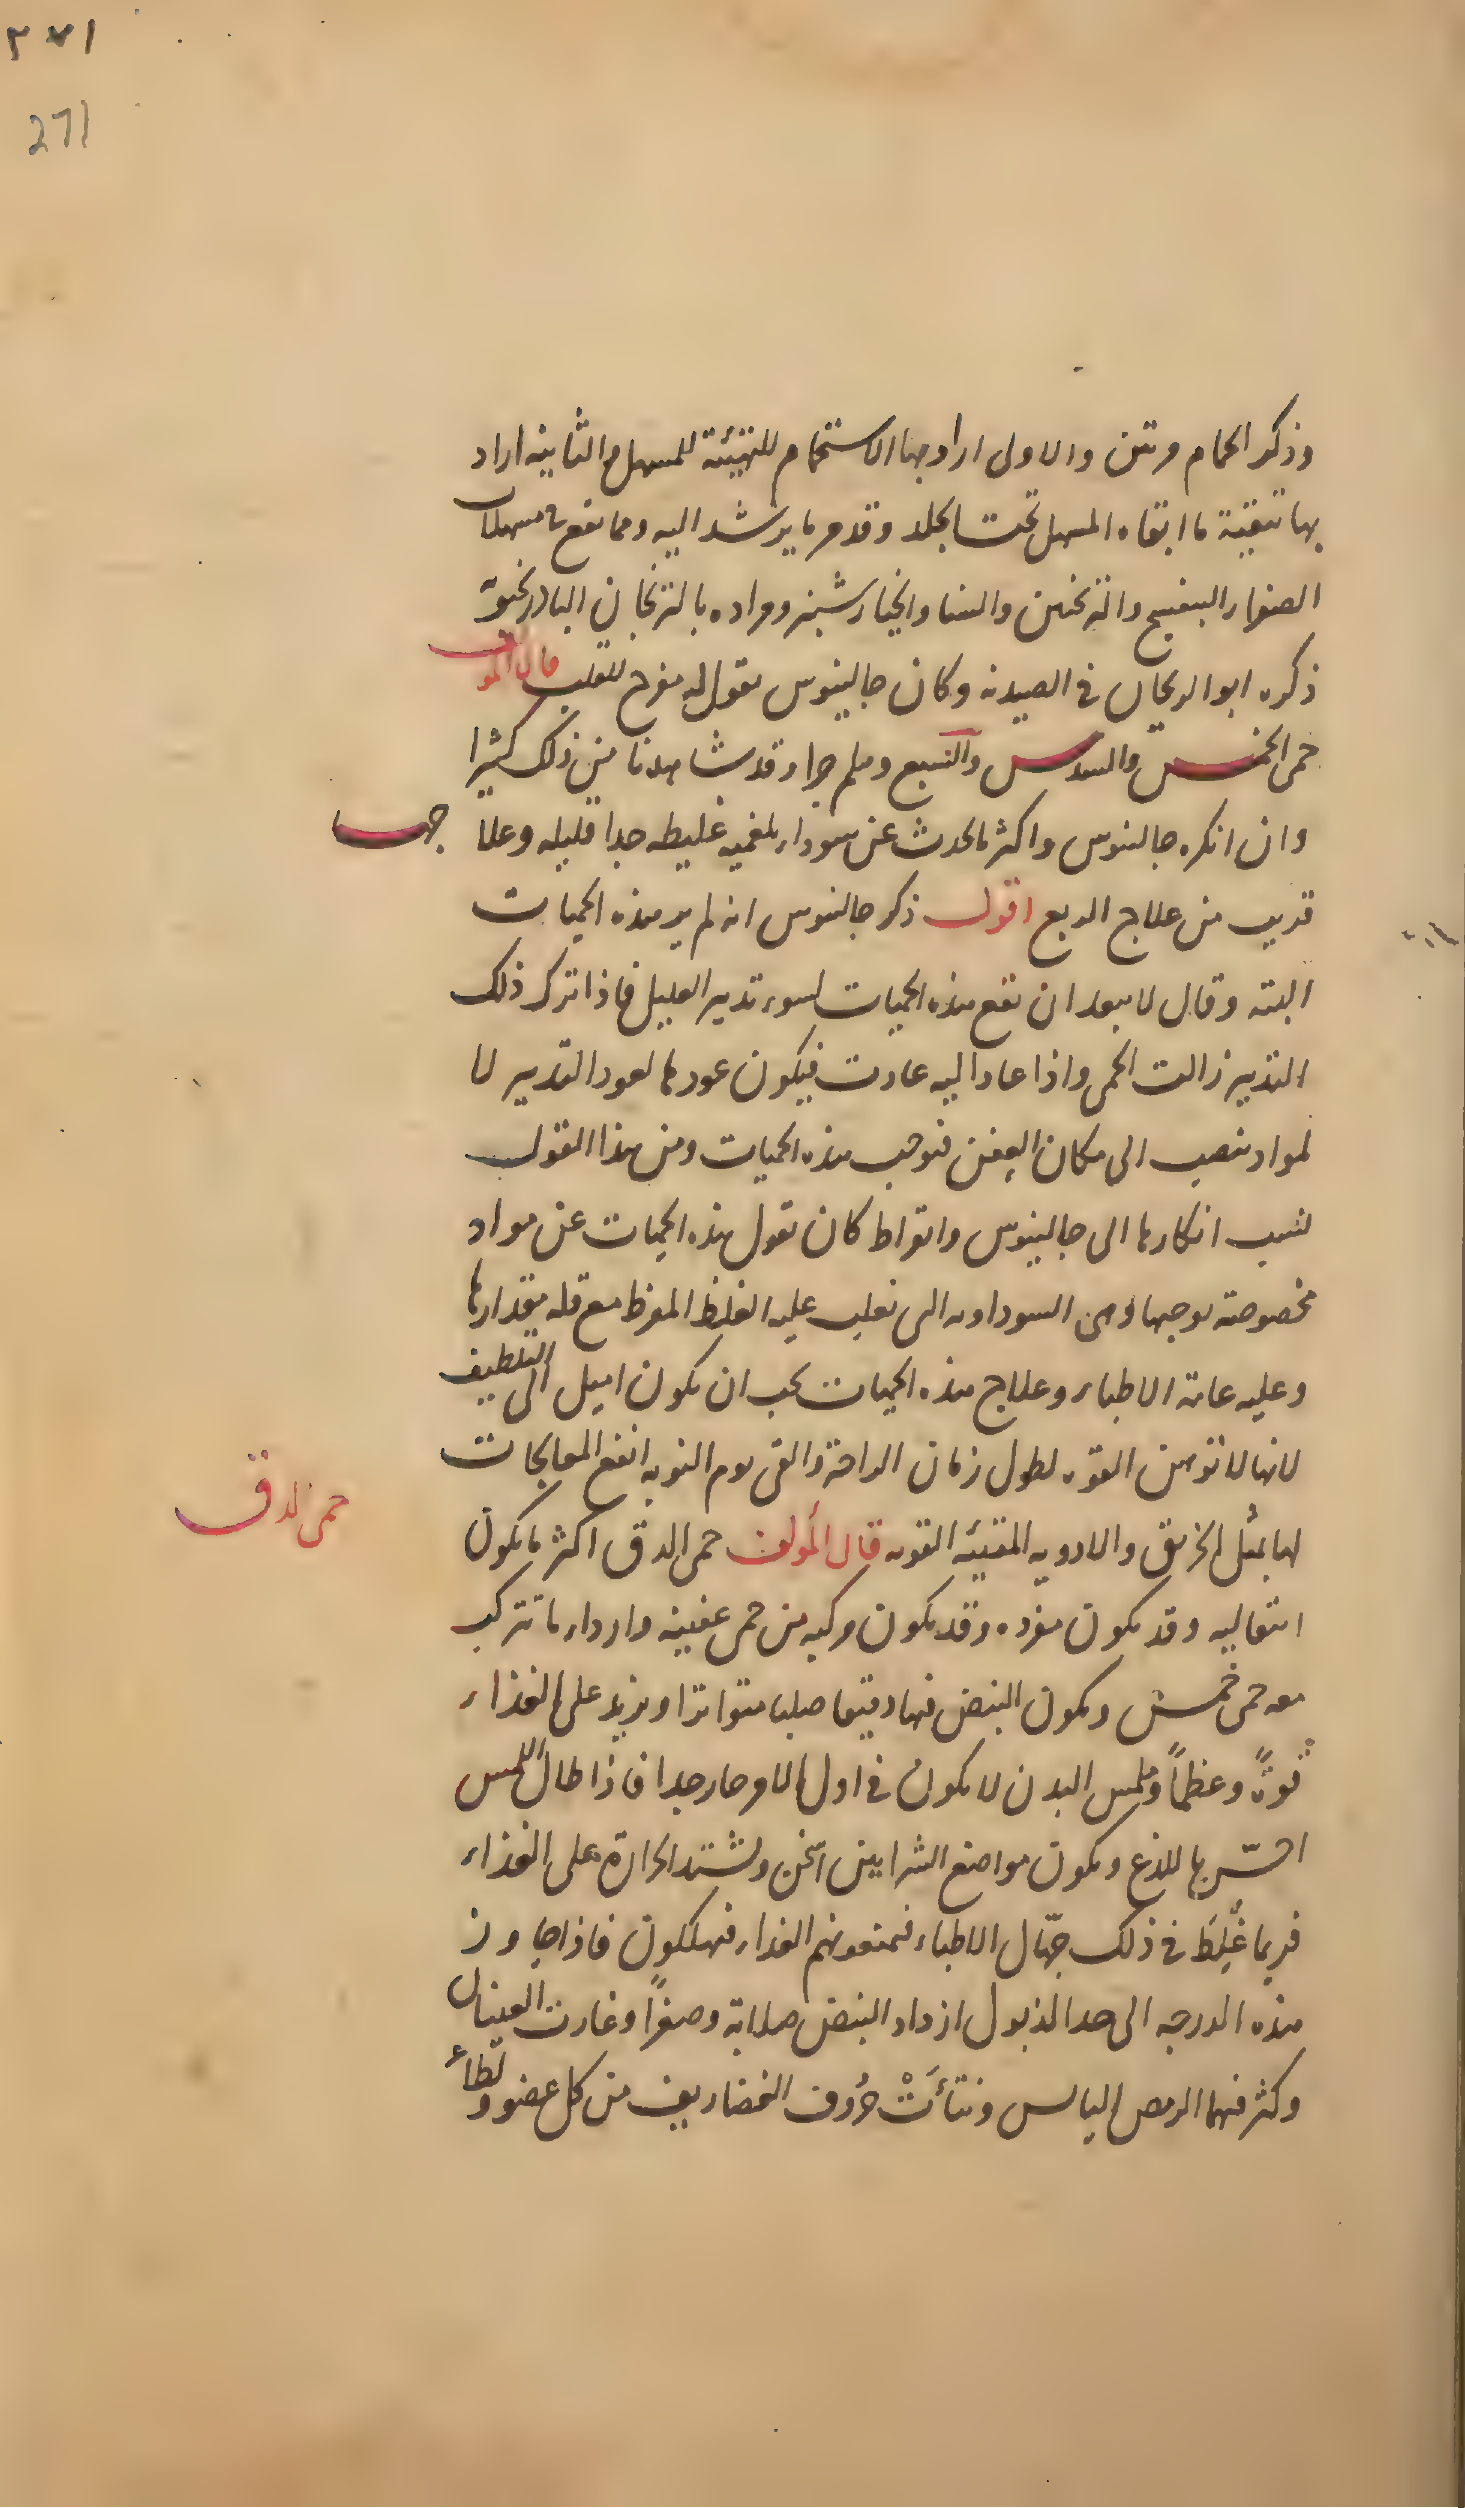 ٢٧١
271
وذكر الحمام مرتين والاولى اراد بها الاستحمام للتهيئة للمسهل والثانية اراد
بها تنقية ما ابقاه المسهل تحت الجلد وقدم ما يرشد اليه ومما يقع في مسهلات
الصفراء البنفسج والترنجبين والسنا والخيار شنبر ومراده بالترنجان البادرنجبويه
ذكره ابو الريحان في الصيدنه وكان جالينوس يقول انه مفرح للقلب قال المولف
حمى الخمس والسدس والسبع وهلم جرا وقد شاهدنا من ذلك كثيرا
وان انكره جالينوس واكثر ما تحدث عن سوداء بلغميه غليظه جدا قليله وعلا جها
قريب من علاج الربع اقول ذكر جالينوس انه لم ير هذه الحميات
البته وقال لا يبعد ان تقع هذه الحميات لسوء تدبير العليل فاذا ترك ذلك
التدبير زالت الحمى واذا عاد اليه عادت فيكون عودها لعود التدبير لا
لمواد تنصب الى مكان العفن فتوجب هذه الحميات ومن هذا القول
نسب انكارها الى جالينوس وابقراط كان يقول هذه الحميات عن مواد
مخصوصة توجبها وهى السوداويه التى تغلب عليه الغلظ المفرط مع قله مقدارها
وعليه عامة الاطباء وعلاج هذه الحميات يجب ان يكون اميل الى التلطيف
لانها لا توهن القوه لطول زمان الراحة والقى يوم النوبه انفع المعالجات
لها بمثل الخربق والادويه المقيئه القويه قال المؤلف حمى الدق اكثر ما يكون
حمى الدق
انتقاليه وقد يكون مفرده وقد يكون مركبه من حمى عفنيه واردأ ما تتركب
معه حمى خمس ويكون النبض فيها دقيقا صلبا متواترا ويزيد على الغذاء
قوةً وعظماً وملمس البدن لا يكون في اول الامر حار جدا فاذا طال اللمس
احسّ بها للذع ويكون مواضع الشرايين اسخن وتشتد الحرارة على الغذاء
فربما غَلِطَ في ذلك جهّال الاطباء فيمنعونهم الغذاء فيهلكون فاذا جاوز
هذه الدرجه الى حد الذبول ازداد النبض صلابة وصغراً وغارت العينان
وكثر فيهما الرمص اليابس ونتأَتْ حُروف الغضاريف من كل عضو ولطأ